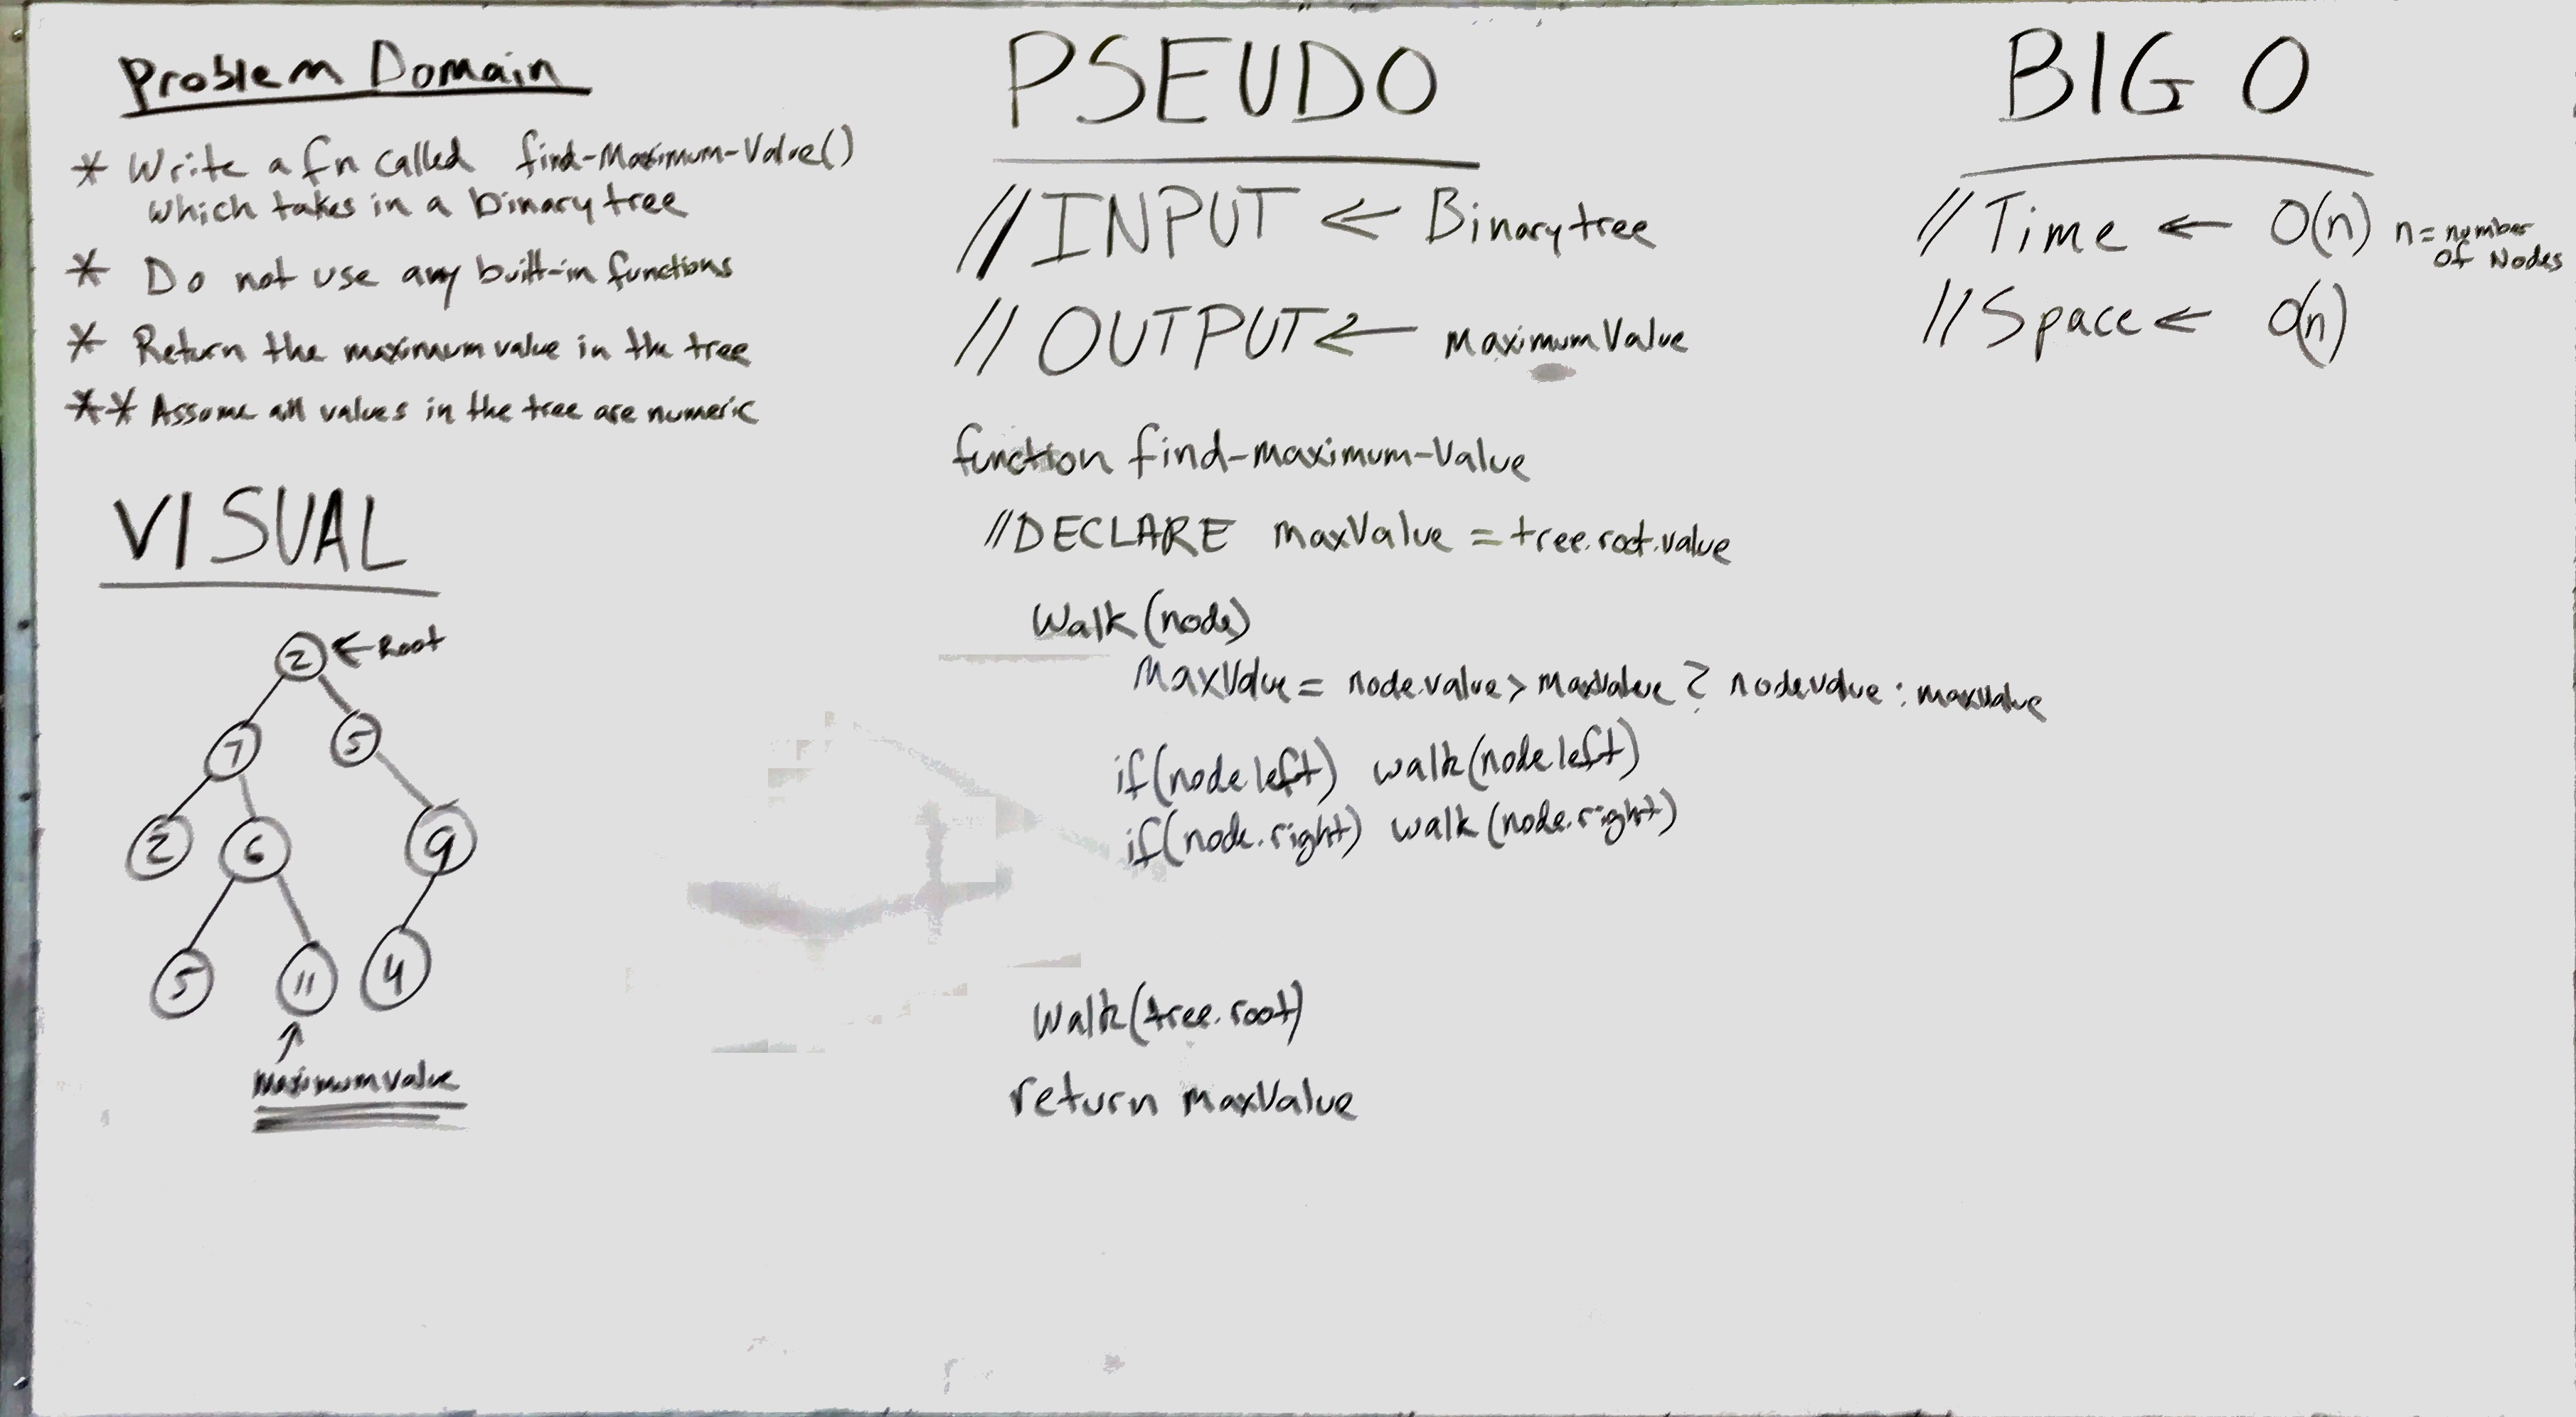 Problem Domain
* Write a fn called find-Maximum-Value()
which takes in a binary tree
* Do not use any built-in functions
* Return the maximum value in the tree
** Assume all values in the tree are numeric
VISUAL
2 ← Root
7 5
2 6 9
5 11 4
↑
Maximum value
PSEUDO
// INPUT ← Binary tree
// OUTPUT ← Maximum Value
function find-maximum-Value
//DECLARE maxValue = tree.root.value
Walk(node)
MaxValue = node.value > maxValue ? node.value : maxvalue
if(node.left) walk(node.left)
if(node.right) walk(node.right)
Walk(tree.root)
return maxValue
BIG O
// Time ← O(n) n = number
of Nodes
// Space ← O(n)